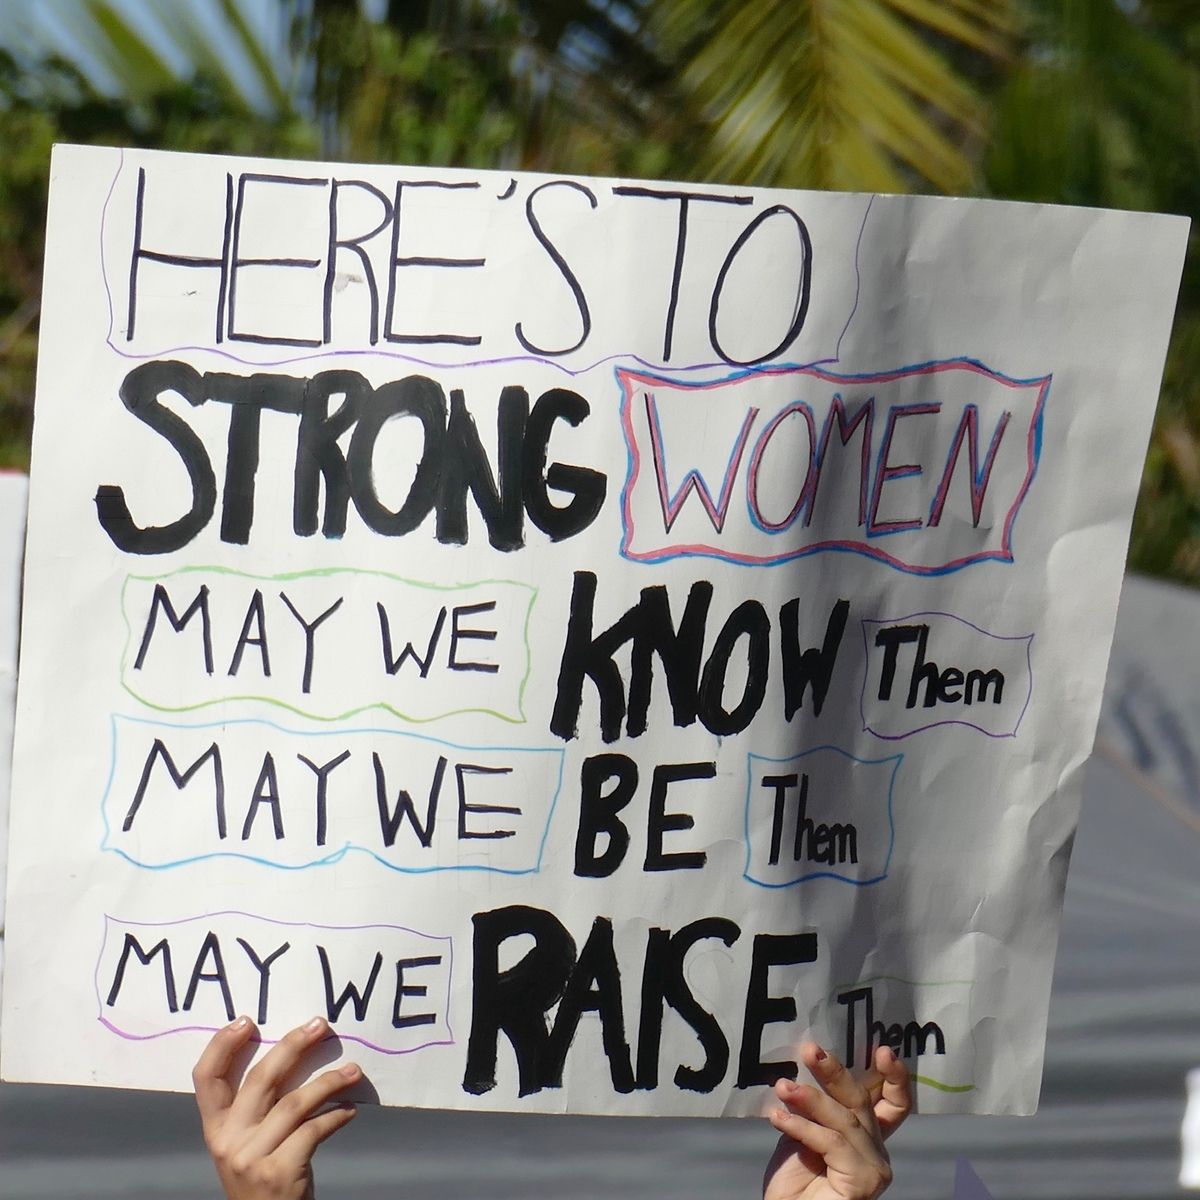 HERE'S TO
STRONG WOMEN
MAY WE KNOW Them
MAY WE BE Them
MAY WE RAISE Them